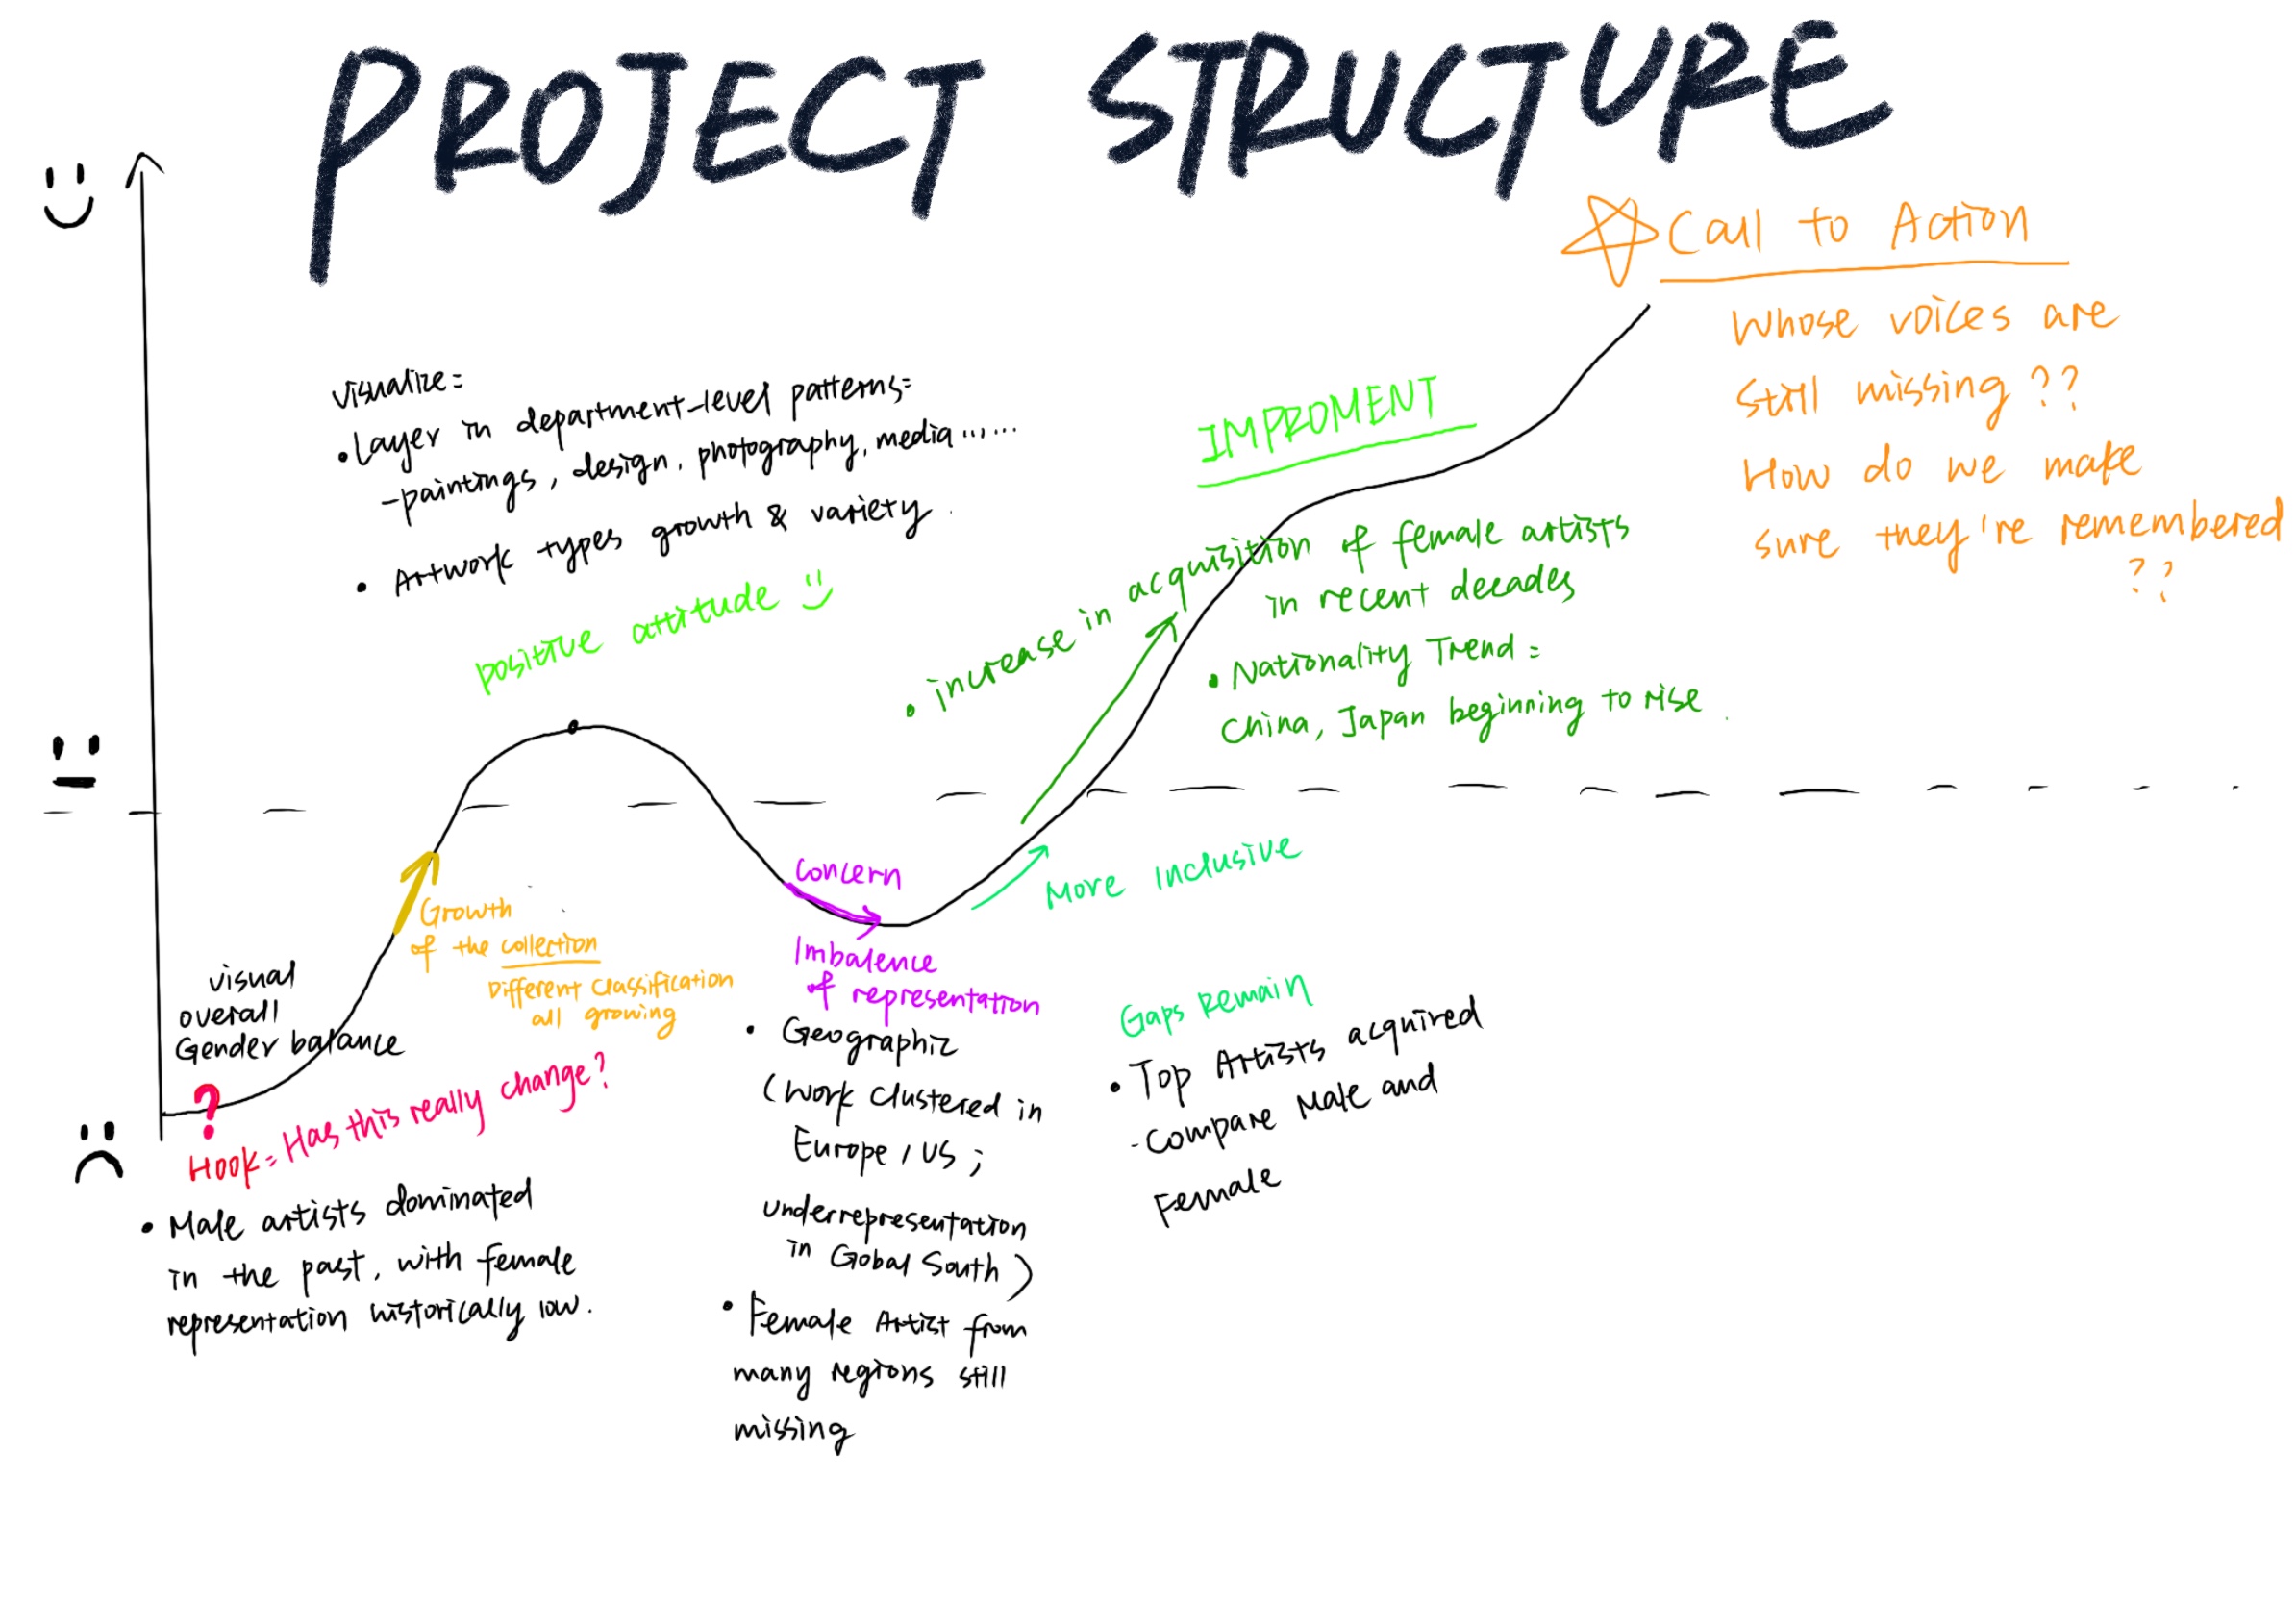 PROJECT STRUCTURE
Call to Action
Whose voices are
Still missing ??
How do we make
sure they're remembered
??
visualize=
• Layer in department-level patterns=
-paintings, design, photography, media ......
• Artwork types growth & variety.
positive attitude
IMPROMENT
• increase in acquisition of female artists
in recent decades
• Nationality Trend =
China, Japan beginning to rise.
Growth
of the collection
Different classification
all growing
visual
overall
Gender balance
?
Hook= Has this really change?
• Male artists dominated
in the past, with female
representation historically low.
Concern
Imbalence
of representation
• Geographic
(work clustered in
Europe, US ;
underrepresentation
in Gobal South)
• Female Artist from
many regions still
missing
More Inclusive
Gaps Remain
• Top Artists acquired
- Compare Male and
Female